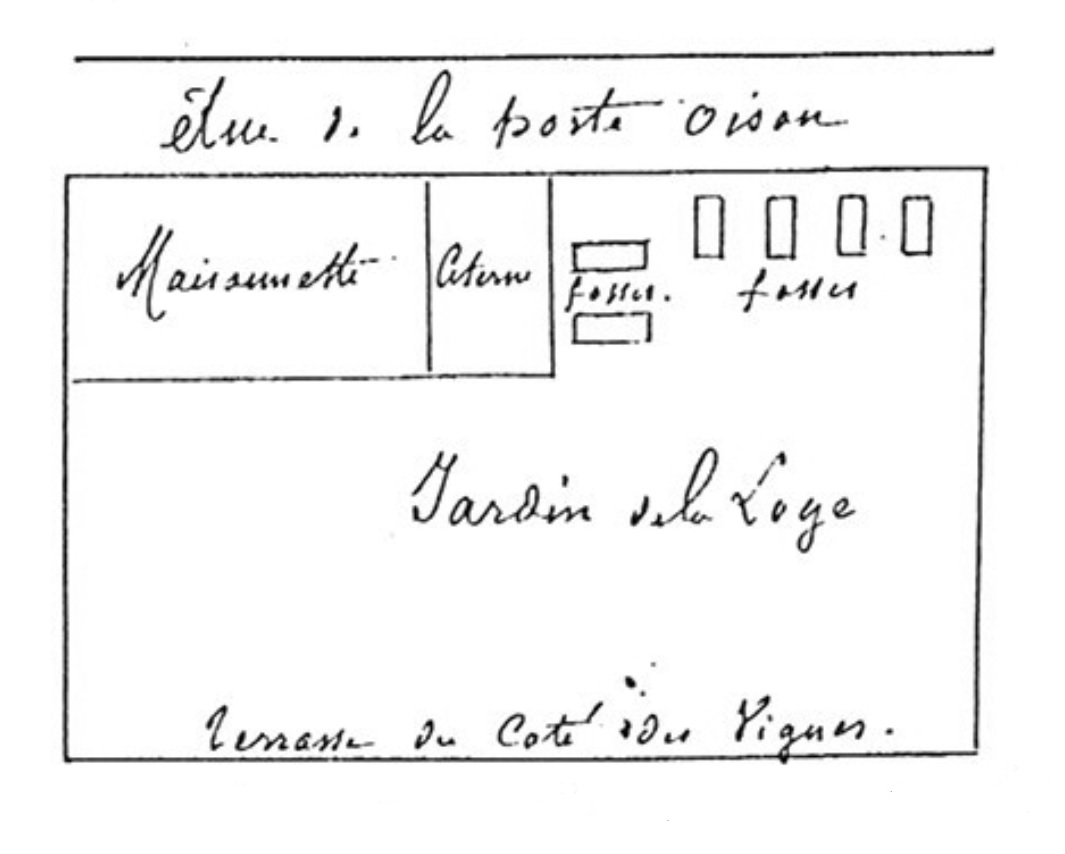 de la porte oison
Maisonnette Citerne
fosses. fosses
Jardin de la Loge
Terrasse du Coté des Vignes.